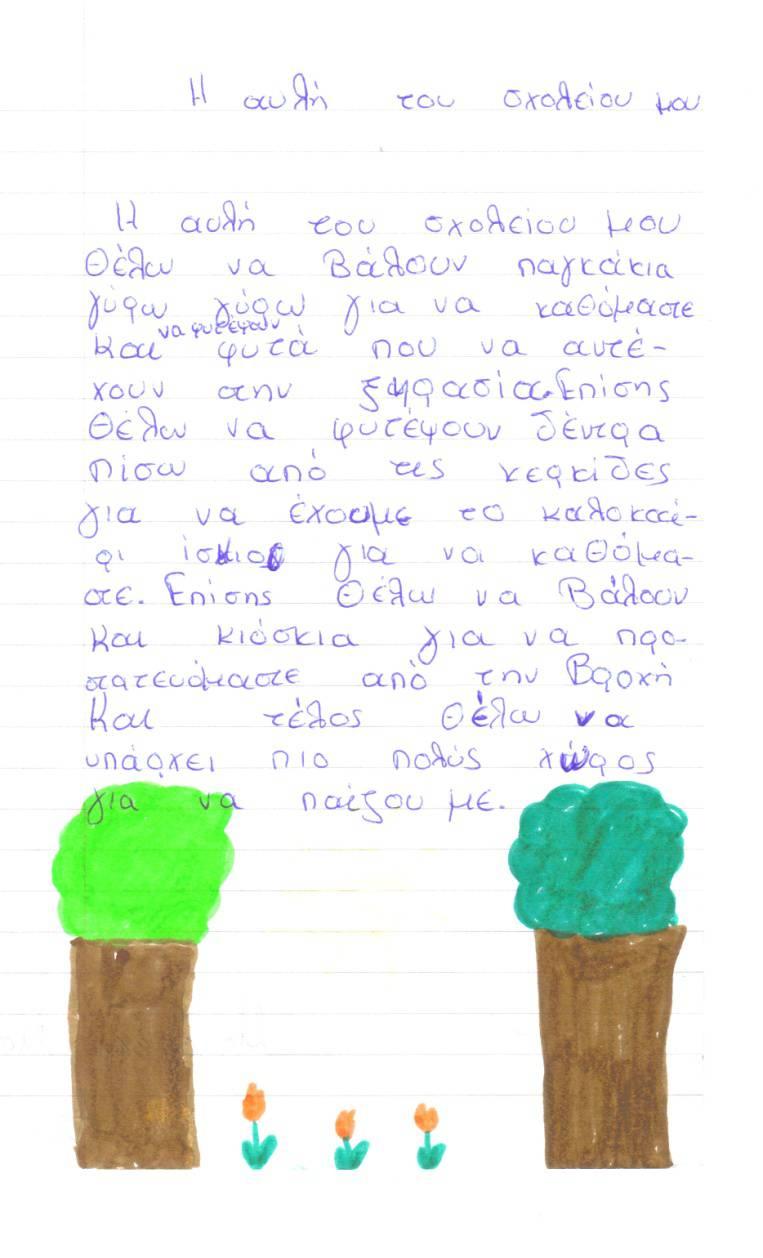 Η αυλή του σχολείου μου
Η αυλή του σχολείου μου
Θέλω να βάλουν παγκάκια
γύρω γύρω για να καθόμαστε
να φυτέψουν
και φυτά που να αντέ-
χουν στην ξηρασία. Επίσης
θέλω να φυτέψουν δέντρα
πίσω από τις κερκίδες
για να έχουμε το καλοκαί-
ρι ίσκιο για να καθόμα-
στε. Επίσης θέλω να βάλουν
και κιόσκια για να προ-
στατευόμαστε από την βροχή
και τέλος θέλω να
υπάρχει πιο πολύς χώρος
για να παίζουμε.